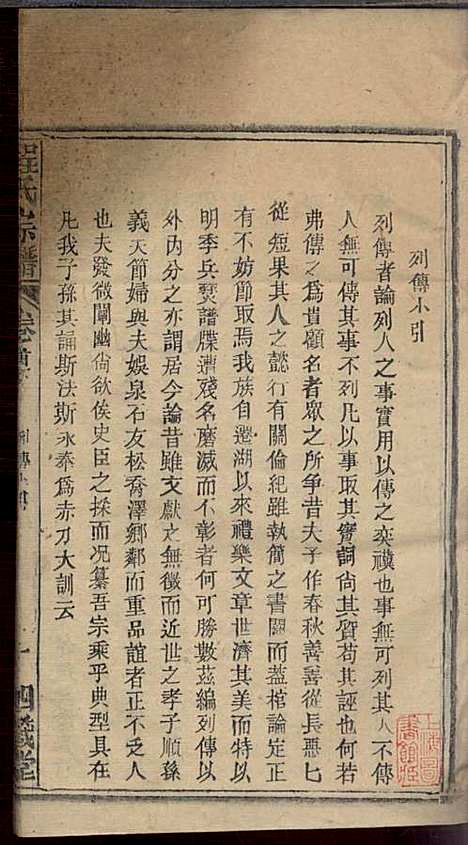 列傳小引
列傳者論列人之事實用以傳之奕禩也事無可列其人不傳
人無可傳其事不列凡以事取其實詞尚其質苟其誣也何若
弗傳之爲貴顧名者衆之所爭昔夫子作春秋善善從長惡惡
從短果其人之懿行有關倫紀雖執簡之書闕而蓋棺論定正
有不妨節取焉我族自遷湖以來禮樂文章世濟其美而特以
明季兵燹譜牒遭殘名磨滅而不彰者何可勝數茲編列傳以
外內分之亦謂居今論昔雖文獻之無徵而近世之孝子順孫
義夫節婦與夫娛泉石友松喬澤鄉鄰而重品誼者正不乏人
也夫發微闡幽尚欲俟史臣之採而况纂吾宗乘乎典型具在
凡我子孫其論斯法斯永奉爲赤刀大訓云
程氏宗譜
卷首
列傳小引
一
四箴堂
上海圖書館藏